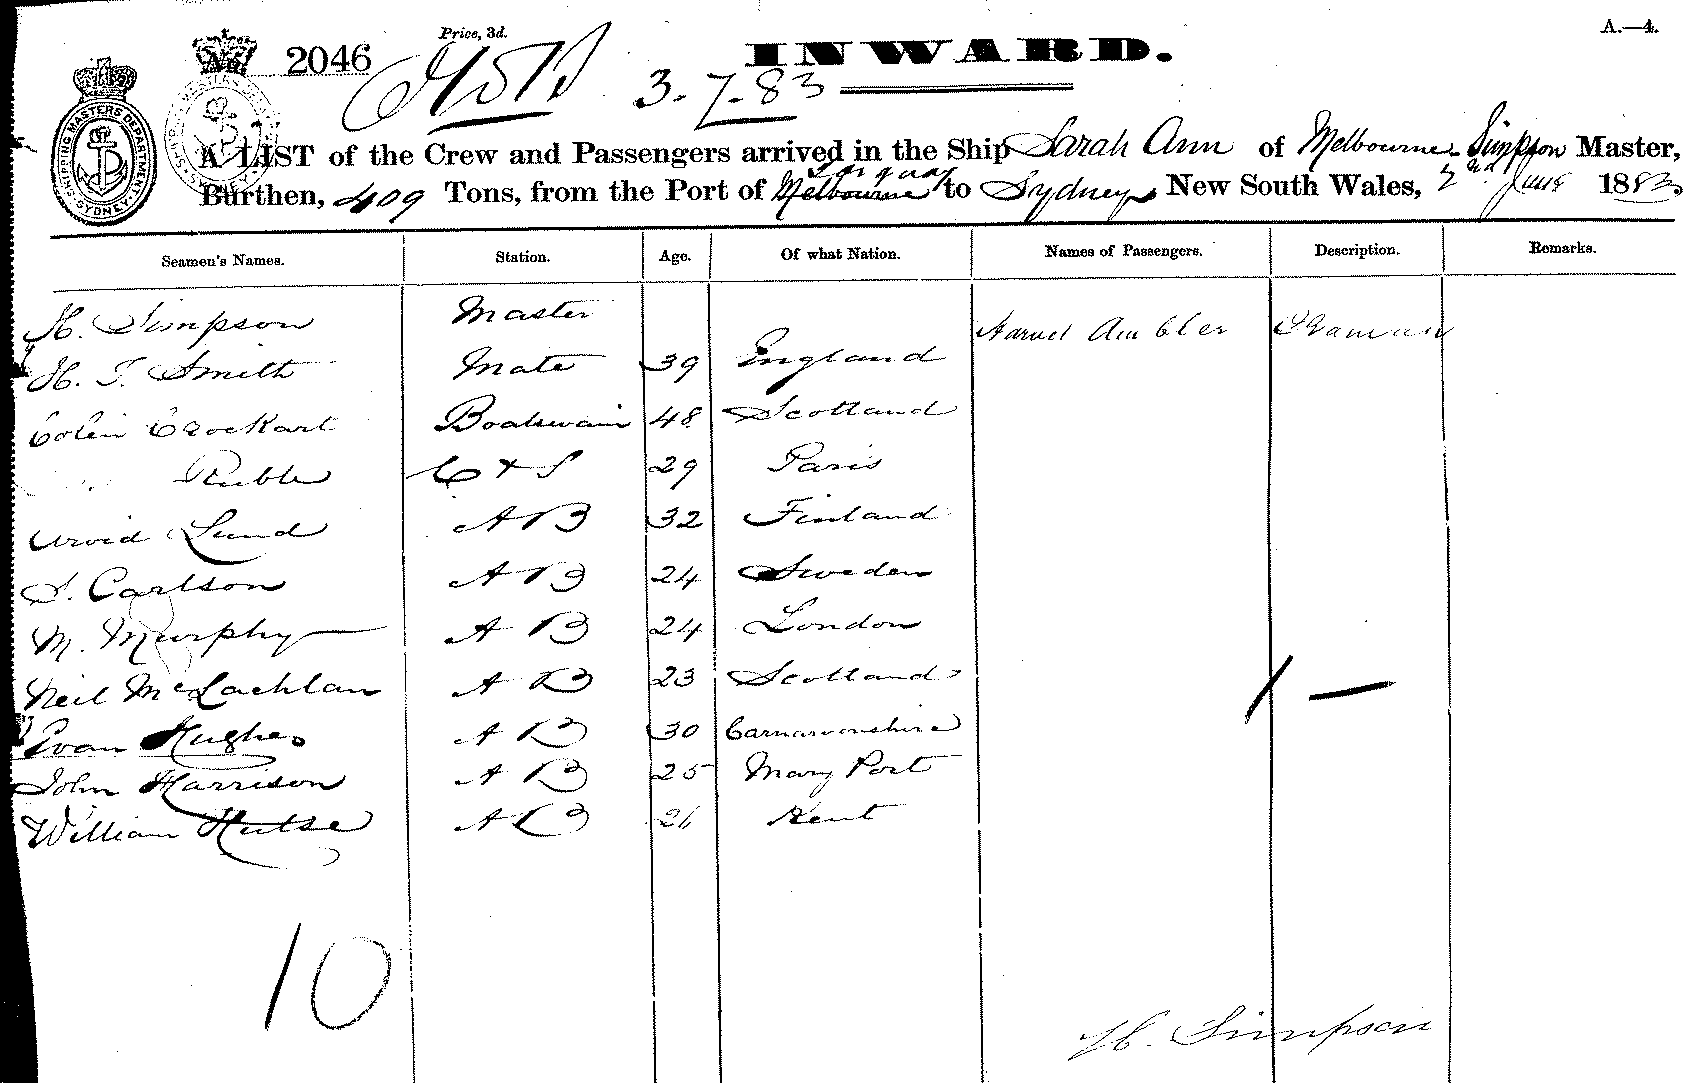 A.—4.
Price, 3d.
No. 2046
INWARD.
3-7-83
SHIPPING MASTERS DEPARTMENT
SYDNEY
A LIST of the Crew and Passengers arrived in the Ship Sarah Ann of Melbourne Simpson Master,
Burthen, 409 Tons, from the Port of Melbourne to Sydney New South Wales, 2nd June 1883
Seamen's Names. Station. Age. Of what Nation. Names of Passengers. Description. Remarks.
H. Simpson Master Ambler
H. T. Smith Mate 39 England
Colin Crockart Boatswain 48 Scotland
C & S 29 Paris
Arvid Lund A B 32 Finland
S. Carlson A B 24 Sweden
M. Murphy A B 24 London
Neil McLachlan A B 23 Scotland
Evan Hughes A B 30 Carnarvonshire
John Harrison A B 25 Mary Port
William Hulse A B 26 Kent
10
H. Simpson